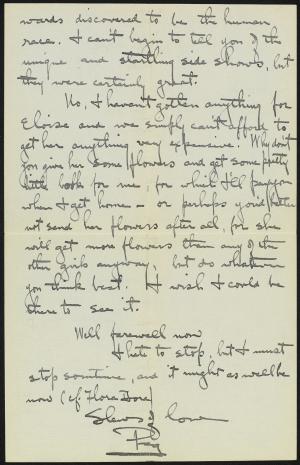 wards discovered to be the human
race. I can't begin to tell you of the
unique and startling side shows, but
they were certainly great.
No, I haven't gotten anything for
Eloise and we simply can't afford to
get her anything very expensive. Why don't
you give her some flowers and get some pretty
little book for me, for which I'll pay you
when I get home - or perhaps you'd better
not send her flowers after all, for she
will get more flowers than any of the
other girls anyway, but do whatever
you think best. I wish I could be
there to see it.
Well farewell now
I hate to stop, but I must
stop sometime, and it might as well be
now (cf. Flora Dora)
Slews of love